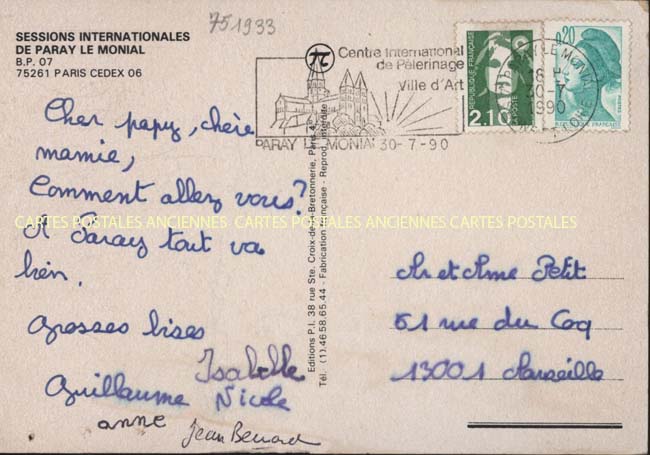 751933
SESSIONS INTERNATIONALES
DE PARAY LE MONIAL
B.P. 07
75261 PARIS CEDEX 06
Cher papy, chère
mamie,
Comment allez vous?
A Paray tout va
bien.
Grosses bises
Isabelle
Guillaume Nicole
anne
Jean Benard
Editions P.I. 38 rue Ste. Croix-de-la-Bretonnerie, Paris 4e
Tél. (1).46.58.65.44 - Fabrication Française - Reprod. interdite
π
Centre International
de Pèlerinage
Ville d'Art
PARAY LE MONIAL 30-7-90
REPUBLIQUE FRANÇAISE
LA POSTE
2,10
0,20
PARAY LE MONIAL
18 H
30-7
1990
SAONE ET LOIRE
Mr et Mme Petit
61 rue du Coq
13001 Marseille
CARTES POSTALES ANCIENNES CARTES POSTALES ANCIENNES CARTES POSTALES